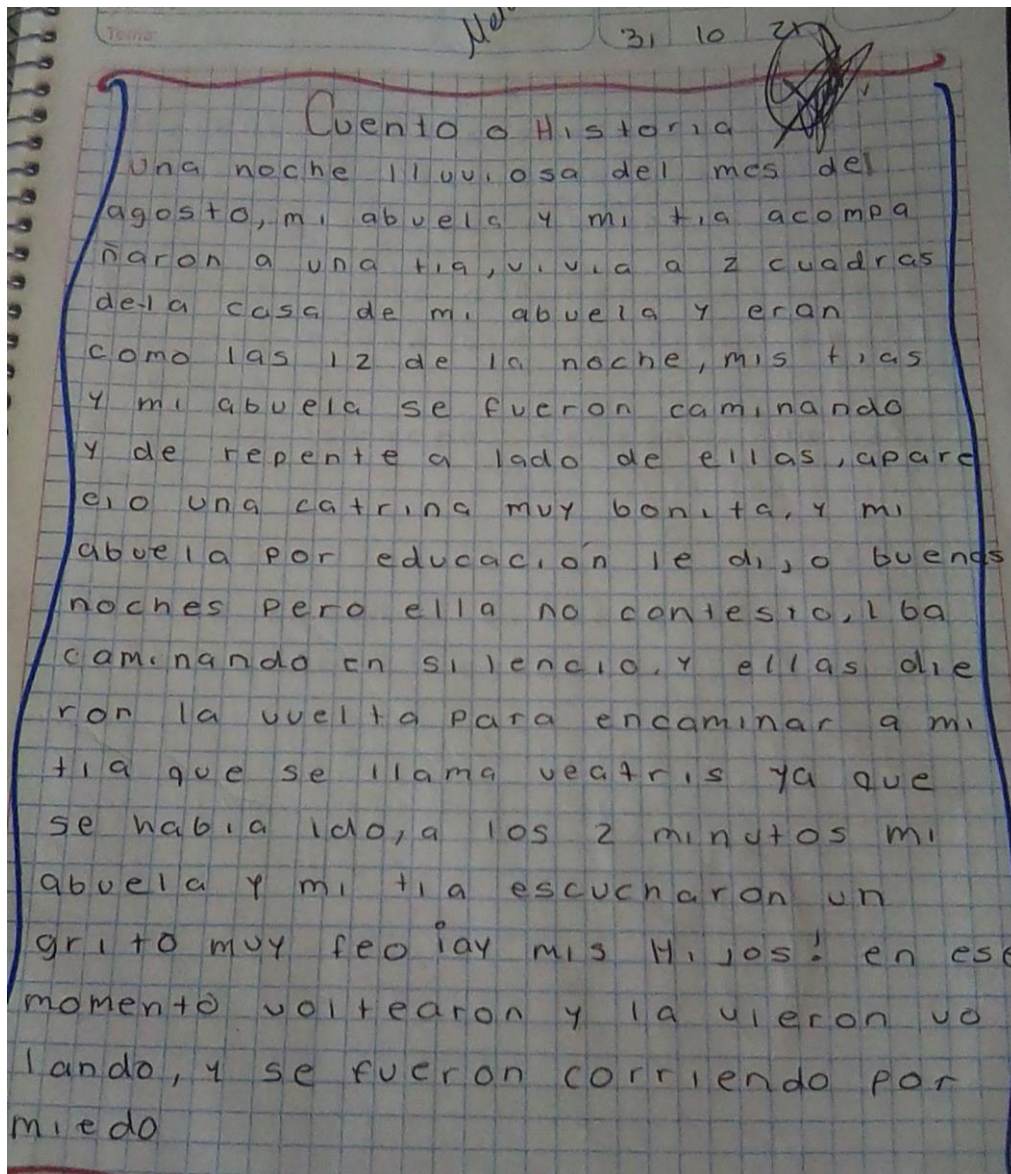 Tema:
31 10
Cuento o Historia
una noche lluviosa del mes del
agosto, mi abuela y mi tia acompa
ñaron a una tia, vivia a 2 cuadras
de la casa de mi abuela y eran
como las 12 de la noche, mis tias
y mi abuela se fueron caminando
y de repente a lado de ellas, apare
cio una catrina muy bonita, y mi
abuela por educación le dijo buenas
noches pero ella no contesto, iba
caminando en silencio, y ellas die
ron la vuelta para encaminar a mi
tia que se llama veatris ya que
se habia ido, a los 2 minutos mi
abuela y mi tia escucharon un
grito muy feo ¡ay mis Hijos! en ese
momento voltearon y la vieron vo
lando, y se fueron corriendo por
miedo